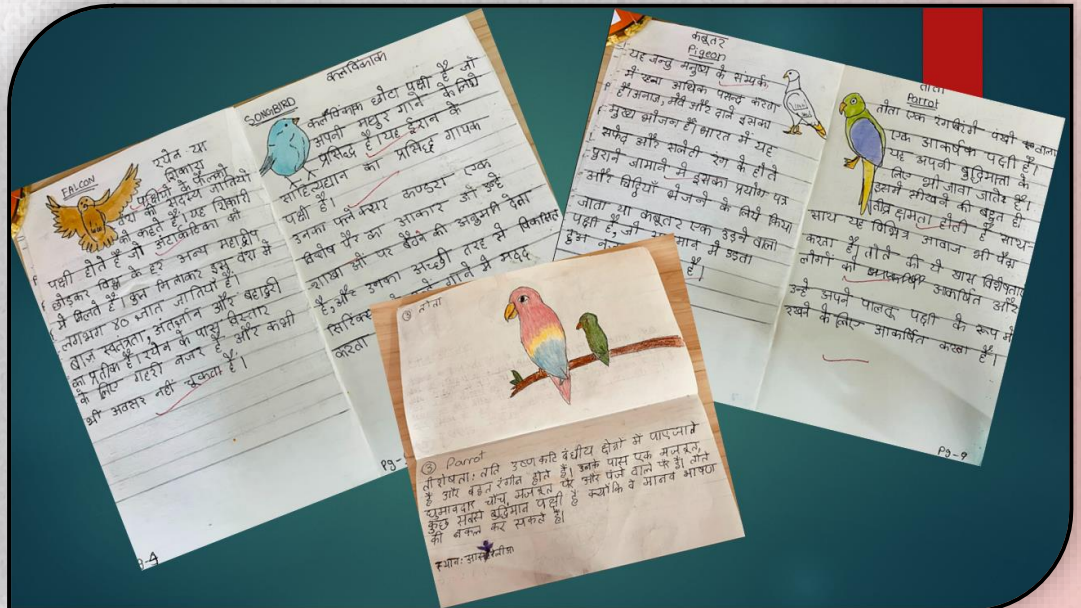 FALCON
श्येन या
शिकारा
पक्षियों के फाल्को
वंश की सदस्य जातियों
को कहते हैं। यह शिकारी
पक्षी होते हैं जो अंटार्कटिका की
छोड़कर विश्व के हर अन्य महाद्वीप
में मिलते हैं। कुल मिलाकर इस वंश में
लगभग ४० ज्ञात जातियाँ हैं।
बाज़ स्वतंत्रता, अंतर्ज्ञान और बहादुरी
का प्रतीक है। श्येन के पास विस्तार
के लिए गहरी नजर है, और कभी
भी अवसर नहीं चूकता है।
कलविंकाक
SONGBIRD
कलविंकाक छोटा पक्षी है जो
अपनी मधुर गाने के लिये
प्रसिद्ध है। यह ईरान के
साहित्यद्यान का प्रसिद्ध गायक
पक्षी है।
उनका फ्लेक्सर कण्डरा एक
विशेष पैर का आकार जो उन्हें
शाखा और पर बैठने की अनुमति देता
है, और उनका अच्छी तरह से विकसित
गाने में मदद
करता
Pg-
कबूतर
Pigeon
यह जन्तु मनुष्य के सम्पर्क
में रहना अधिक पसन्द करता
है। अनाज, मेवे और दाने इसका
मुख्य भोजन हैं। भारत में यह
सफेद और सलेटी रंग के होते
पुराने जामाने में इसका प्रयोग पत्र
और चिट्ठियाँ भेजने के लिये किया
जाता था कबूतर एक उड़ने वाला
पक्षी है, जो आसमान में उड़ता
हुआ
है।
तोता
Parrot
तोता एक रंगबिरंगी पंखो वाला
एक आकर्षक पक्षी है।
यह अपनी बुद्धिमाता के
लिए भी जावा जाते है।
इसमें सीखने की बहुत ही
तीव्र क्षमता होती है साथ-
साथ यह विभिन्न आवाज भी पैदा
करता है। तोते की ये खास विशेषताए
लोगों को आकर्षित और
उन्हें अपने पालतू पक्षी के रूप में
रखने के लिए आकर्षित करता है।
Pg-9
③ तोता
③ Parrot
तोते उष्णकटिबंधीय क्षेत्रों में पाए जाते
है और बहुत रंगीन होते हैं। उनके पास एक मजबूत,
घुमावदार चोंच, मजबूत पैर और पंजे वाले पैर हैं। तोते
कुछ सबसे बुद्धिमान पक्षी हैं क्योंकि वे मानव भाषण
की नकल कर सकते हैं।
स्थान: